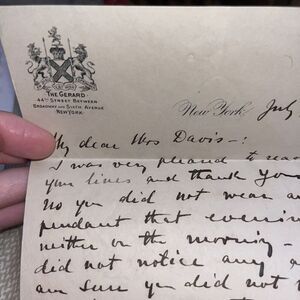 THE GERARD
44TH STREET BETWEEN
BROADWAY AND SIXTH AVENUE
NEW YORK.
New York July
My dear Mrs Davis-:
I was very pleased to
your lines and thank you
no you did not wear
pendant that evening
neither on the morning -
did not notice any
am sure you did not